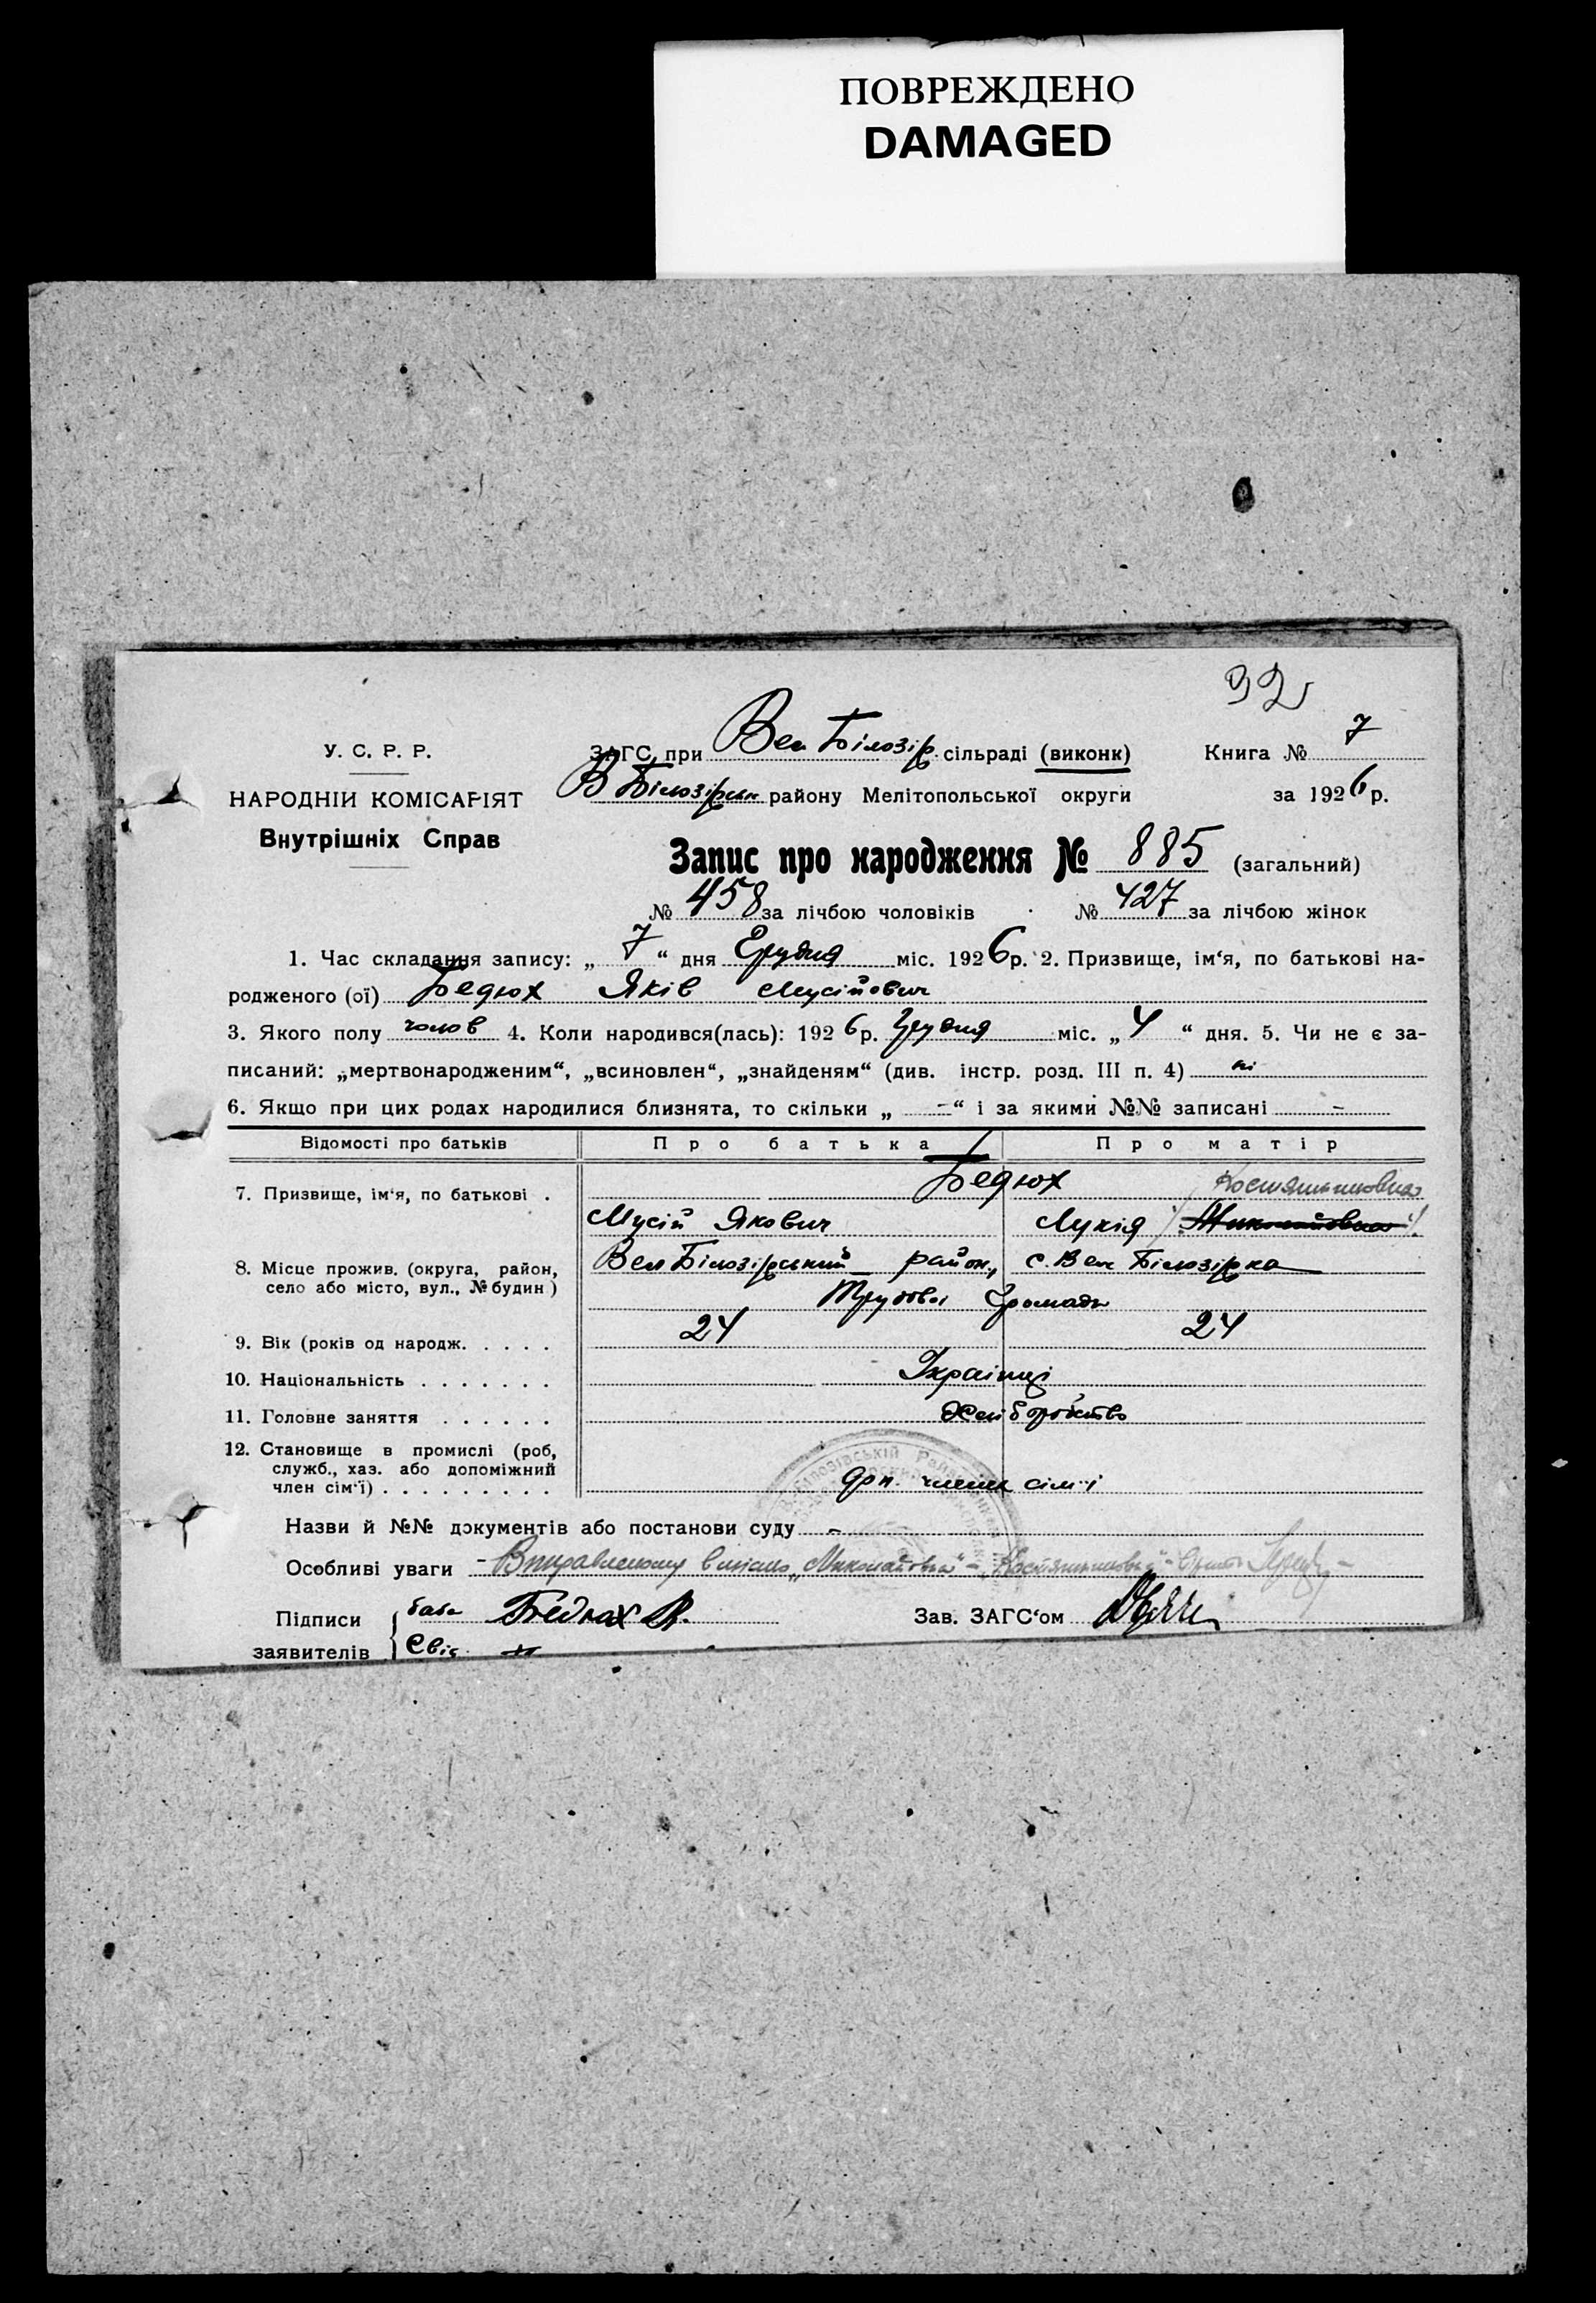 ПОВРЕЖДЕНО
DAMAGED
92
У. С. Р. Р.
НАРОДНІЙ КОМІСАРІЯТ
Внутрішніх Справ
ЗАГС при Вел Білозір. сільраді (виконк) Книга № 7
В Білозірськ району Мелітопольської округи за 1926 р.
Запис про народження № 885 (загальний)
№ 458 за лічбою чоловіків № 427 за лічбою жінок
1. Час складання запису: „ 7 “ дня Грудня міс. 1926 р. 2. Призвище, ім‘я, по батькові на-
родженого (ої) Бедюх Яків Мусійович
3. Якого полу чолов 4. Коли народився(лась): 1926 р. Грудня міс. „ 4 “ дня. 5. Чи не є за-
писаний: „мертвонародженим“, „всиновлен“, „знайденям“ (див. інстр. розд. III п. 4) ні
6. Якщо при цих родах народилися близнята, то скільки „ - “ і за якими №№ записані -
Відомості про батьків Про батька Про матір
7. Призвище, ім‘я, по батькові . Бедюх Костянтиновна
Мусій Якович Лукія Миколаївна
8. Місце прожив. (округа, район,
село або місто, вул., № будин)
Вел Білозірський район, с. Вел Білозірка
Трудової Громади
9. Вік (років од народж. . . . . 24 24
10. Національність . . . . . . . Українці
11. Головне заняття . . . . . . Хліборобство
12. Становище в промислі (роб,
служб., хаз. або допоміжний
член сім‘ї) . . . . . . . . . доп. член сім'ї
Назви й №№ документів або постанови суду -
Особливі уваги - Виправленому вміло „Миколаївна“ - „Костянтиновна“ -
Підписи заявителів { баба Бедюх Я.
Свід.
Зав. ЗАГС‘ом